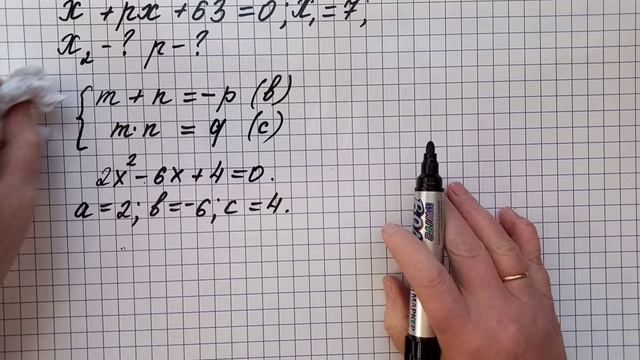 x + px + 63 = 0; x₁ = 7;
x₂ - ? p - ?
m + n = -p (в)
m·n = q (c)
2x² - 6x + 4 = 0.
a = 2; в = -6; c = 4.
МАРКЕР